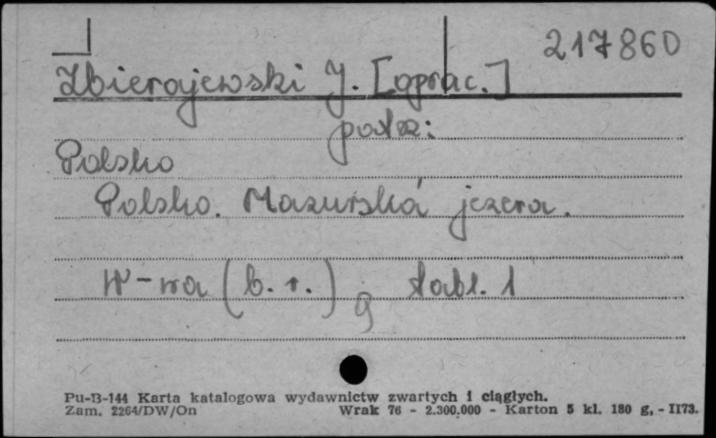 217860
Zbierajewski J. [oprac.]
patrz:
Polsko
Polsko. Mazurská jezera.
W-wa (b. r.) g tabl. 1
Pu-B-144 Karta katalogowa wydawnictw zwartych i ciągłych.
Zam. 2264/DW/On Wrak 76 - 2.300.000 - Karton 5 kl. 180 g. - II73.